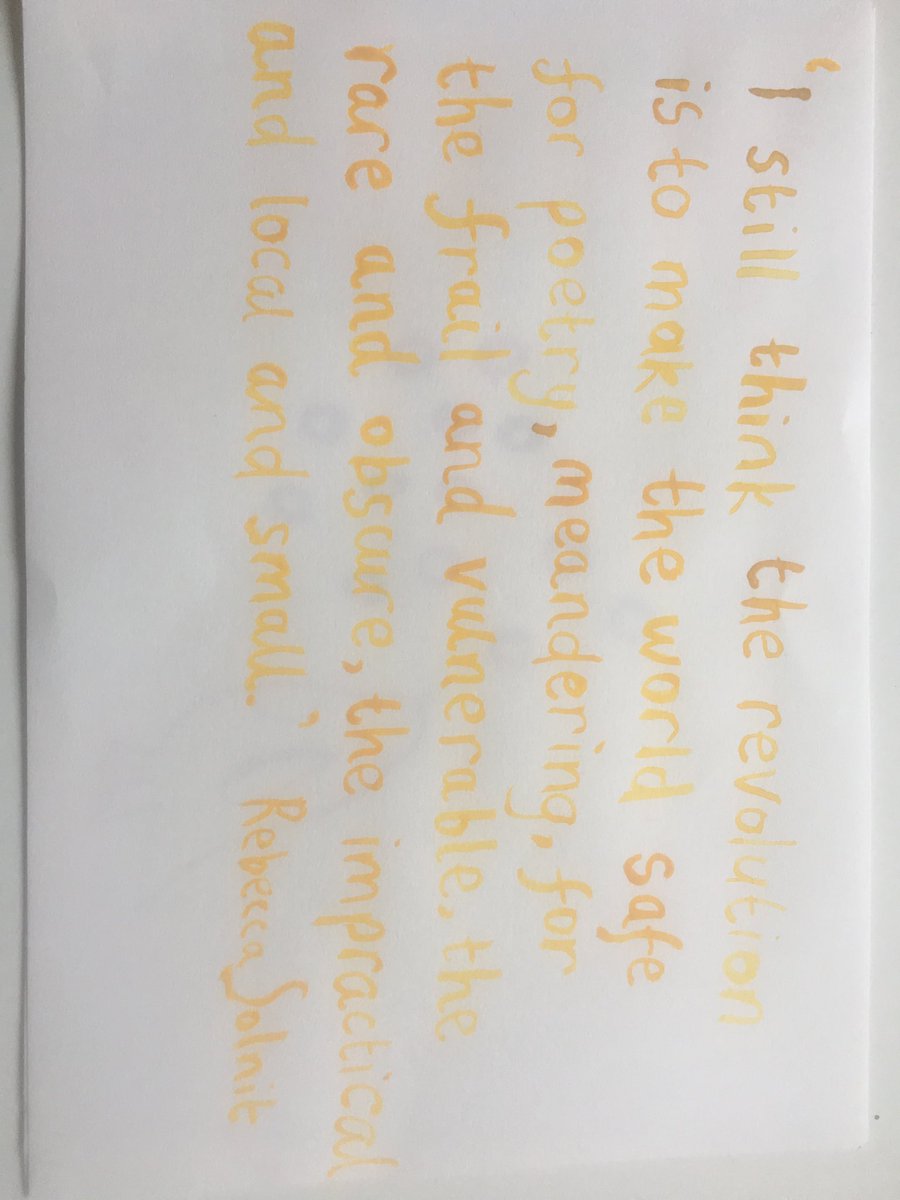 'I still think the revolution
is to make the world safe
for poetry, meandering, for
the frail and vulnerable, the
rare and obscure, the impractical
and local and small.' Rebecca Solnit